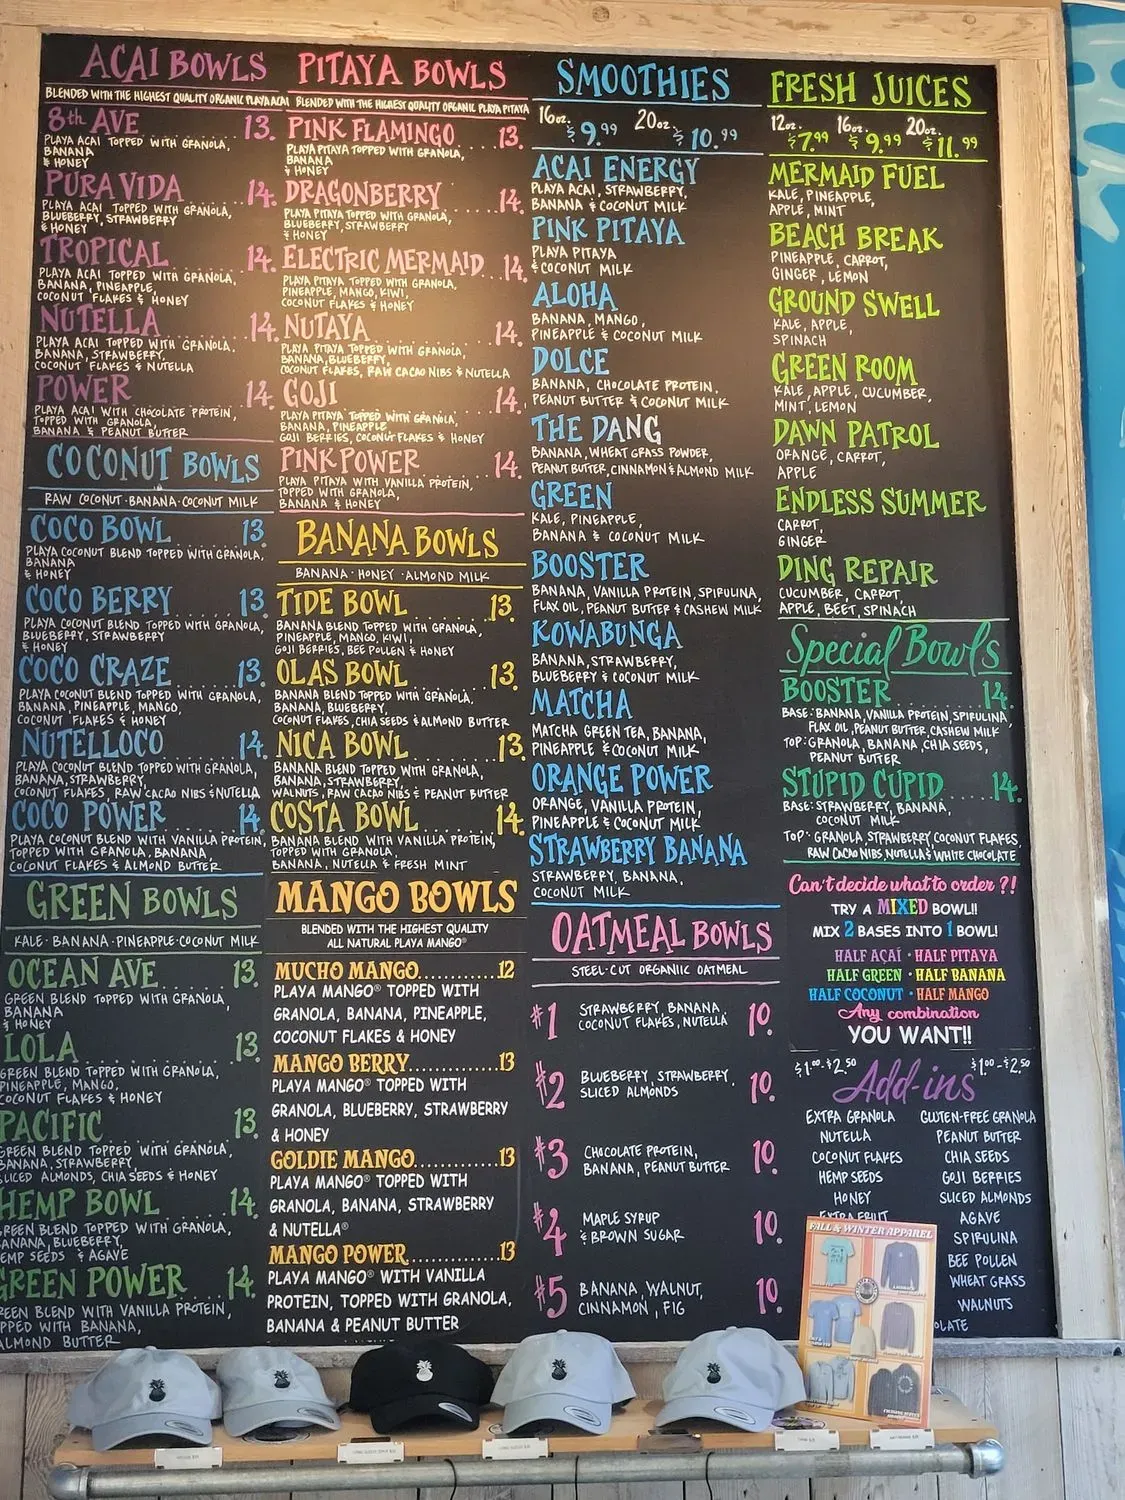 ACAI BOWLS
BLENDED WITH THE HIGHEST QUALITY ORGANIC PLAYA ACAI
8th AVE 13.
PLAYA ACAI TOPPED WITH GRANOLA,
BANANA
& HONEY
PURA VIDA 14.
PLAYA ACAI TOPPED WITH GRANOLA,
BLUEBERRY, STRAWBERRY
& HONEY
TROPICAL 14.
PLAYA ACAI TOPPED WITH GRANOLA,
BANANA, PINEAPPLE,
COCONUT FLAKES & HONEY
NUTELLA 14.
PLAYA ACAI TOPPED WITH GRANOLA.
BANANA, STRAWBERRY,
COCONUT FLAKES & NUTELLA
POWER 14.
PLAYA ACAI WITH CHOCOLATE PROTEIN,
TOPPED WITH GRANOLA,
BANANA & PEANUT BUTTER
COCONUT BOWLS
RAW COCONUT · BANANA · COCONUT MILK
COCO BOWL 13.
PLAYA COCONUT BLEND TOPPED WITH GRANOLA,
BANANA
& HONEY
COCO BERRY 13.
PLAYA COCONUT BLEND TOPPED WITH GRANOLA,
BLUEBERRY, STRAWBERRY
& HONEY
COCO CRAZE 13.
PLAYA COCONUT BLEND TOPPED WITH GRANOLA,
BANANA, PINEAPPLE, MANGO,
COCONUT FLAKES & HONEY
NUTELLOCO 14.
PLAYA COCONUT BLEND TOPPED WITH GRANOLA,
BANANA, STRAWBERRY,
COCONUT FLAKES, RAW CACAO NIBS & NUTELLA
COCO POWER 14.
PLAYA COCONUT BLEND WITH VANILLA PROTEIN,
TOPPED WITH GRANOLA, BANANA,
COCONUT FLAKES & ALMOND BUTTER
GREEN BOWLS
KALE · BANANA · PINEAPPLE · COCONUT MILK
OCEAN AVE 13.
GREEN BLEND TOPPED WITH GRANOLA,
BANANA
& HONEY
LOLA 13.
GREEN BLEND TOPPED WITH GRANOLA,
PINEAPPLE, MANGO,
COCONUT FLAKES & HONEY
PACIFIC 13.
GREEN BLEND TOPPED WITH GRANOLA,
BANANA, STRAWBERRY,
SLICED ALMONDS, CHIA SEEDS & HONEY
HEMP BOWL 14.
GREEN BLEND TOPPED WITH GRANOLA,
BANANA, BLUEBERRY,
HEMP SEEDS & AGAVE
GREEN POWER 14.
GREEN BLEND WITH VANILLA PROTEIN,
TOPPED WITH BANANA,
ALMOND BUTTER
PITAYA BOWLS
BLENDED WITH THE HIGHEST QUALITY ORGANIC PLAYA PITAYA
PINK FLAMINGO 13.
PLAYA PITAYA TOPPED WITH GRANOLA,
BANANA
& HONEY
DRAGONBERRY 14.
PLAYA PITAYA TOPPED WITH GRANOLA,
BLUEBERRY, STRAWBERRY
& HONEY
ELECTRIC MERMAID 14.
PLAYA PITAYA TOPPED WITH GRANOLA,
PINEAPPLE, MANGO, KIWI,
COCONUT FLAKES & HONEY
NUTAYA 14.
PLAYA PITAYA TOPPED WITH GRANOLA,
BANANA, BLUEBERRY,
COCONUT FLAKES, RAW CACAO NIBS & NUTELLA
GOJI 14.
PLAYA PITAYA TOPPED WITH GRANOLA,
BANANA, PINEAPPLE
GOJI BERRIES, COCONUT FLAKES & HONEY
PINK POWER 14.
PLAYA PITAYA WITH VANILLA PROTEIN,
TOPPED WITH GRANOLA,
BANANA & HONEY
BANANA BOWLS
BANANA · HONEY · ALMOND MILK
TIDE BOWL 13.
BANANA BLEND TOPPED WITH GRANOLA,
PINEAPPLE, MANGO, KIWI,
GOJI BERRIES, BEE POLLEN & HONEY
OLAS BOWL 13.
BANANA BLEND TOPPED WITH GRANOLA,
BANANA, BLUEBERRY,
COCONUT FLAKES, CHIA SEEDS & ALMOND BUTTER
NICA BOWL 13.
BANANA BLEND TOPPED WITH GRANOLA,
BANANA, STRAWBERRY,
WALNUTS, RAW CACAO NIBS & PEANUT BUTTER
COSTA BOWL 14.
BANANA BLEND WITH VANILLA PROTEIN,
TOPPED WITH GRANOLA,
BANANA, NUTELLA & FRESH MINT
MANGO BOWLS
BLENDED WITH THE HIGHEST QUALITY
ALL NATURAL PLAYA MANGO®
MUCHO MANGO............12
PLAYA MANGO® TOPPED WITH
GRANOLA, BANANA, PINEAPPLE,
COCONUT FLAKES & HONEY
MANGO BERRY............13
PLAYA MANGO® TOPPED WITH
GRANOLA, BLUEBERRY, STRAWBERRY
& HONEY
GOLDIE MANGO............13
PLAYA MANGO® TOPPED WITH
GRANOLA, BANANA, STRAWBERRY
& NUTELLA®
MANGO POWER............13
PLAYA MANGO® WITH VANILLA
PROTEIN, TOPPED WITH GRANOLA,
BANANA & PEANUT BUTTER
SMOOTHIES
16oz. $9.99 20oz. $10.99
ACAI ENERGY
PLAYA ACAI, STRAWBERRY,
BANANA & COCONUT MILK
PINK PITAYA
PLAYA PITAYA
& COCONUT MILK
ALOHA
BANANA, MANGO,
PINEAPPLE & COCONUT MILK
DOLCE
BANANA, CHOCOLATE PROTEIN,
PEANUT BUTTER & COCONUT MILK
THE DANG
BANANA, WHEAT GRASS POWDER,
PEANUT BUTTER, CINNAMON & ALMOND MILK
GREEN
KALE, PINEAPPLE,
BANANA & COCONUT MILK
BOOSTER
BANANA, VANILLA PROTEIN, SPIRULINA,
FLAX OIL, PEANUT BUTTER & CASHEW MILK
KOWABUNGA
BANANA, STRAWBERRY,
BLUEBERRY & COCONUT MILK
MATCHA
MATCHA GREEN TEA, BANANA,
PINEAPPLE & COCONUT MILK
ORANGE POWER
ORANGE, VANILLA PROTEIN,
PINEAPPLE & COCONUT MILK
STRAWBERRY BANANA
STRAWBERRY, BANANA,
COCONUT MILK
OATMEAL BOWLS
STEEL-CUT ORGANIIC OATMEAL
#1 STRAWBERRY, BANANA, 10.
COCONUT FLAKES, NUTELLA
#2 BLUEBERRY, STRAWBERRY, 10.
SLICED ALMONDS
#3 CHOCOLATE PROTEIN, 10.
BANANA, PEANUT BUTTER
#4 MAPLE SYRUP 10.
& BROWN SUGAR
#5 BANANA, WALNUT, 10.
CINNAMON, FIG
FRESH JUICES
12oz. $7.99 16oz. $9.99 20oz. $11.99
MERMAID FUEL
KALE, PINEAPPLE,
APPLE, MINT
BEACH BREAK
PINEAPPLE, CARROT,
GINGER, LEMON
GROUND SWELL
KALE, APPLE,
SPINACH
GREEN ROOM
KALE, APPLE, CUCUMBER,
MINT, LEMON
DAWN PATROL
ORANGE, CARROT,
APPLE
ENDLESS SUMMER
CARROT,
GINGER
DING REPAIR
CUCUMBER, CARROT,
APPLE, BEET, SPINACH
Special Bowls
BOOSTER 14.
BASE: BANANA, VANILLA PROTEIN, SPIRULINA,
FLAX OIL, PEANUT BUTTER, CASHEW MILK
TOP: GRANOLA, BANANA, CHIA SEEDS,
PEANUT BUTTER
STUPID CUPID 14.
BASE: STRAWBERRY, BANANA,
COCONUT MILK
TOP: GRANOLA, STRAWBERRY, COCONUT FLAKES,
RAW CACAO NIBS, NUTELLA & WHITE CHOCOLATE
Can't decide what to order?!
TRY A MIXED BOWL!!
MIX 2 BASES INTO 1 BOWL!
HALF AÇAÍ · HALF PITAYA
HALF GREEN · HALF BANANA
HALF COCONUT · HALF MANGO
Any combination
YOU WANT!!
$1.00-$2.50 Add-ins $1.00-$2.50
EXTRA GRANOLA GLUTEN-FREE GRANOLA
NUTELLA PEANUT BUTTER
COCONUT FLAKES CHIA SEEDS
HEMP SEEDS GOJI BERRIES
HONEY SLICED ALMONDS
EXTRA FRUIT AGAVE
SPIRULINA
BEE POLLEN
WHEAT GRASS
WALNUTS
OLATE
FALL & WINTER APPAREL